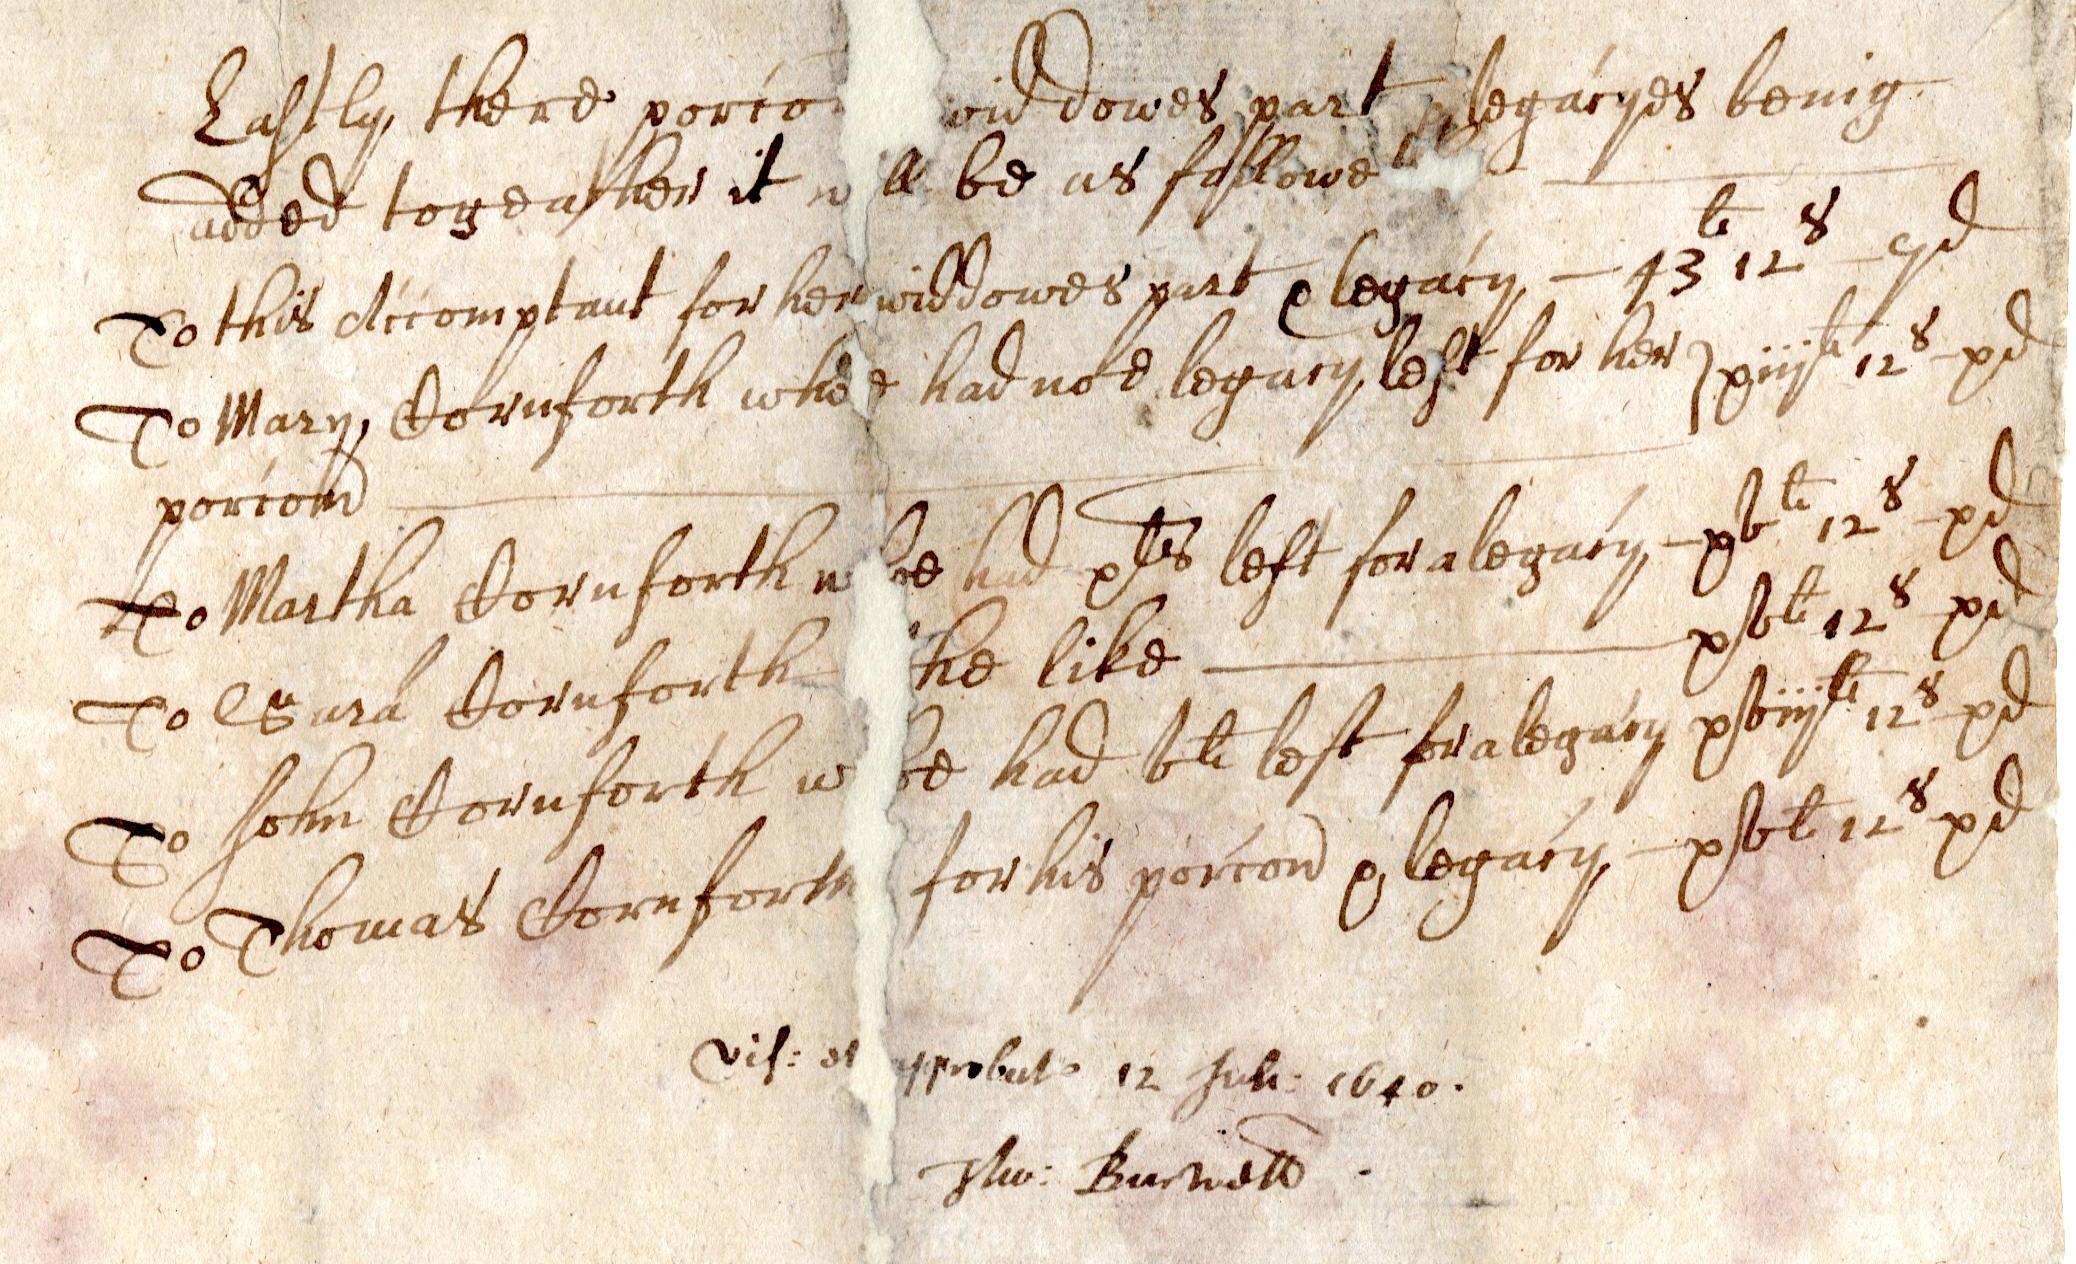 Lastly, there porcio widdowes part & legacyes being
added togeather it will be as followe
To this Accomptant for her widdowes part & legacy — 43li 12s — 9d
To Mary Cornforth whoe had noe legacy left for her } xiiijli 12s xd
porcion
To Martha Cornforth whoe had xxs left for a legacy — xvli 12s — xd
To Sara Cornforth the like — xvli 12s xd
To John Cornforth whoe had vli left for a legacy xviiijli 12s xd
To Thomas Cornforth for his porcion & legacy — xvli 12s xd
Vis: et approbat 12 Julii: 1640.
Tho: Burwell